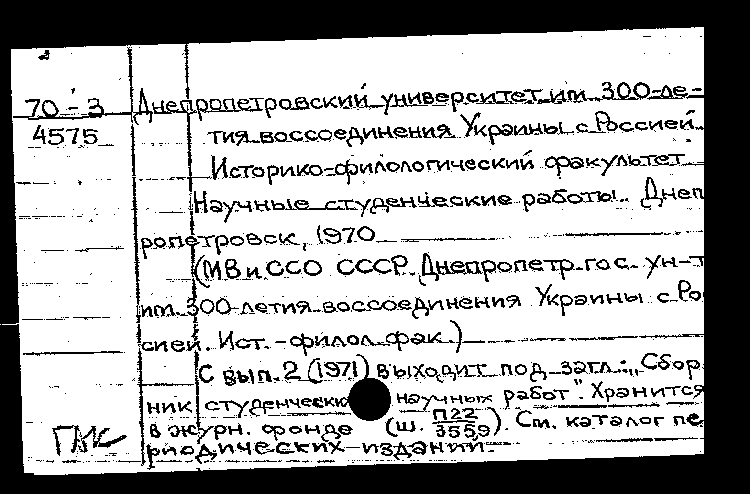 70-3 Днепропетровский университет им. 300-ле-
4575 тия воссоединения Украины с Россией.
Историко-филологический факультет
Научные студенческие работы. Днеп
ропетровск, 1970
(МВ и ССО СССР. Днепропетр. гос. ун-т
им. 300-летия воссоединения Украины с Ро
сией. Ист.-филол. фак.)
С вып. 2 (1971) выходит под загл.: "Сбор
ник студенчески научных работ". Хранится
в журн. фонде (ш. П22/3559). См. каталог пе
риодических изданий.
ГАК